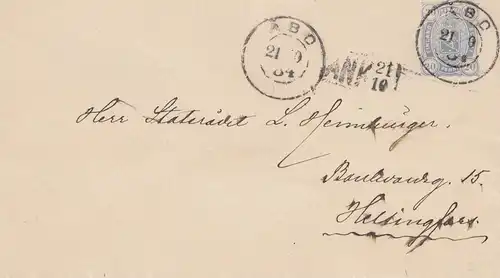 ABO
21 9
84
ABO
21 9
84
ANK
21
10
Herr Statsrådet L. Heimbürger.
Boulevardsg. 15.
Helsingfors.